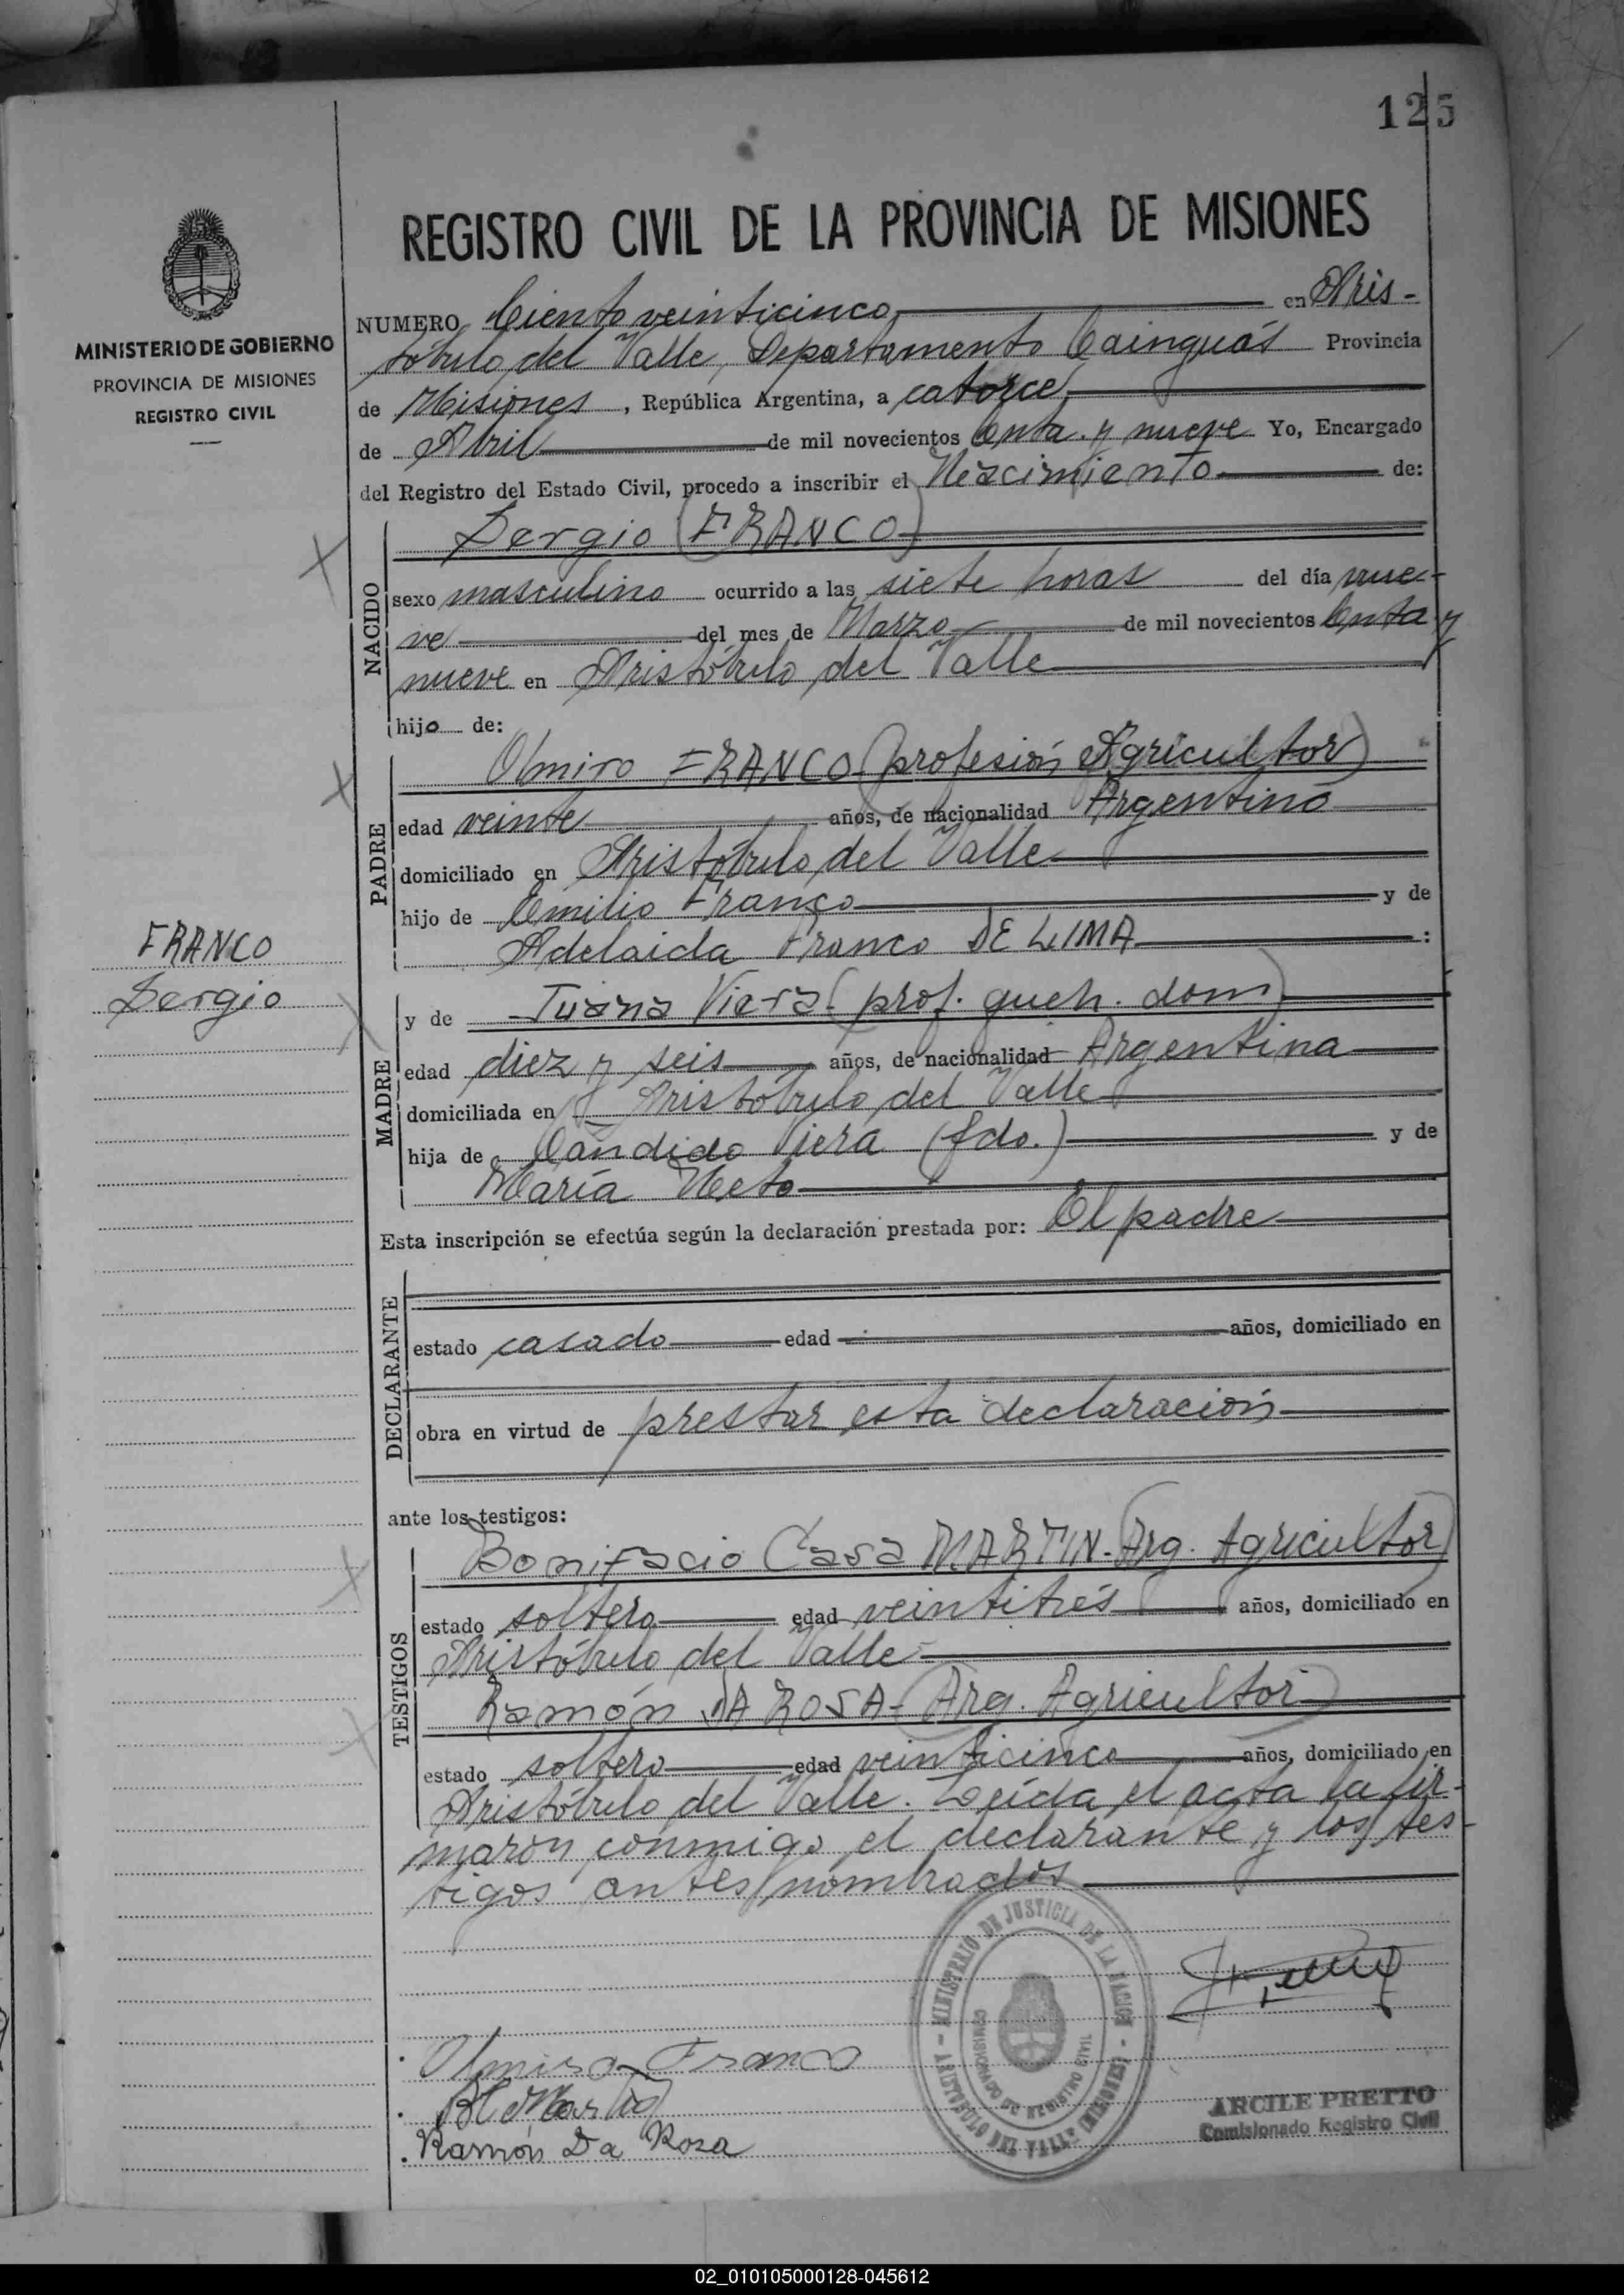 125
MINISTERIO DE GOBIERNO
PROVINCIA DE MISIONES
REGISTRO CIVIL
REGISTRO CIVIL DE LA PROVINCIA DE MISIONES
NUMERO Ciento veinticinco en Aris-
tóbulo del Valle, Departamento Cainguás Provincia
de Misiones, República Argentina, a catorce
de Abril de mil novecientos enta y nueve Yo, Encargado
del Registro del Estado Civil, procedo a inscribir el Nacimiento de:
NACIDO
Sergio (FRANCO)
sexo masculino ocurrido a las siete horas del día nue-
ve del mes de Marzo de mil novecientos enta y
nueve en Aristóbulo del Valle
hijo de:
PADRE
Olmiro FRANCO (profesión Agricultor)
edad veinte años, de nacionalidad Argentino
domiciliado en Aristóbulo del Valle
hijo de Emilio Franco y de
Adelaida Franco DE LIMA :
FRANCO
Sergio
MADRE
y de Juana Viera (prof. queh. dom)
edad diez y seis años, de nacionalidad Argentina
domiciliada en Aristóbulo del Valle
hija de Cándido Viera (fdo.) y de
María Neto
Esta inscripción se efectúa según la declaración prestada por: El padre
DECLARANTE
estado casado edad años, domiciliado en
obra en virtud de prestar esta declaración
ante los testigos:
TESTIGOS
Bonifacio Casa MARTIN-(Arg. Agricultor)
estado soltero edad veintitrés años, domiciliado en
Aristóbulo del Valle
Ramón DA ROSA-(Arg. Agricultor)
estado soltero edad veinticinco años, domiciliado en
Aristóbulo del Valle. Leída el acta la fir-
maron conmigo el declarante y los tes-
tigos antes nombrados
MINISTERIO DE JUSTICIA DE LA NACION - ARISTOBULO DEL VALLE (MISIONES) -
COMISIONADO DE REGISTRO CIVIL
Olmiro Franco
Ramón Da Rosa
ARCILE PRETTO
Comisionado Registro Civil
02_010105000128-045612